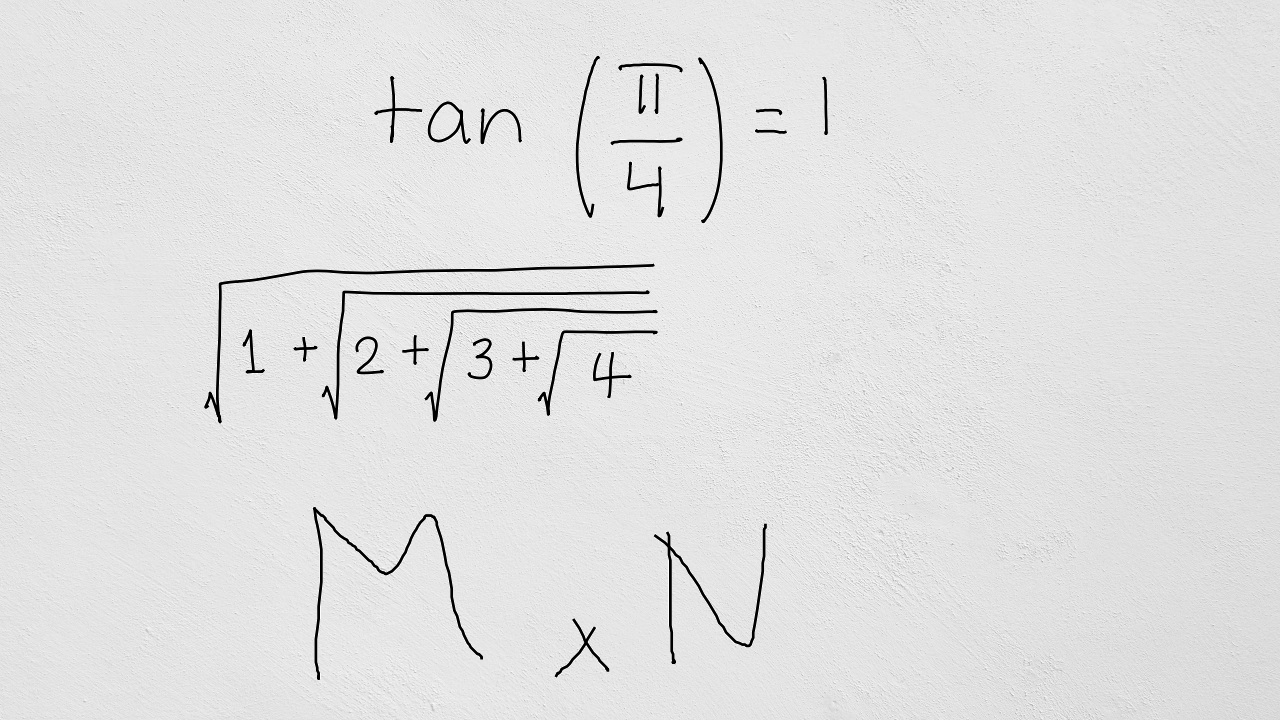 tan (π/4) = 1
√(1 + √(2 + √(3 + √4)))
M x N